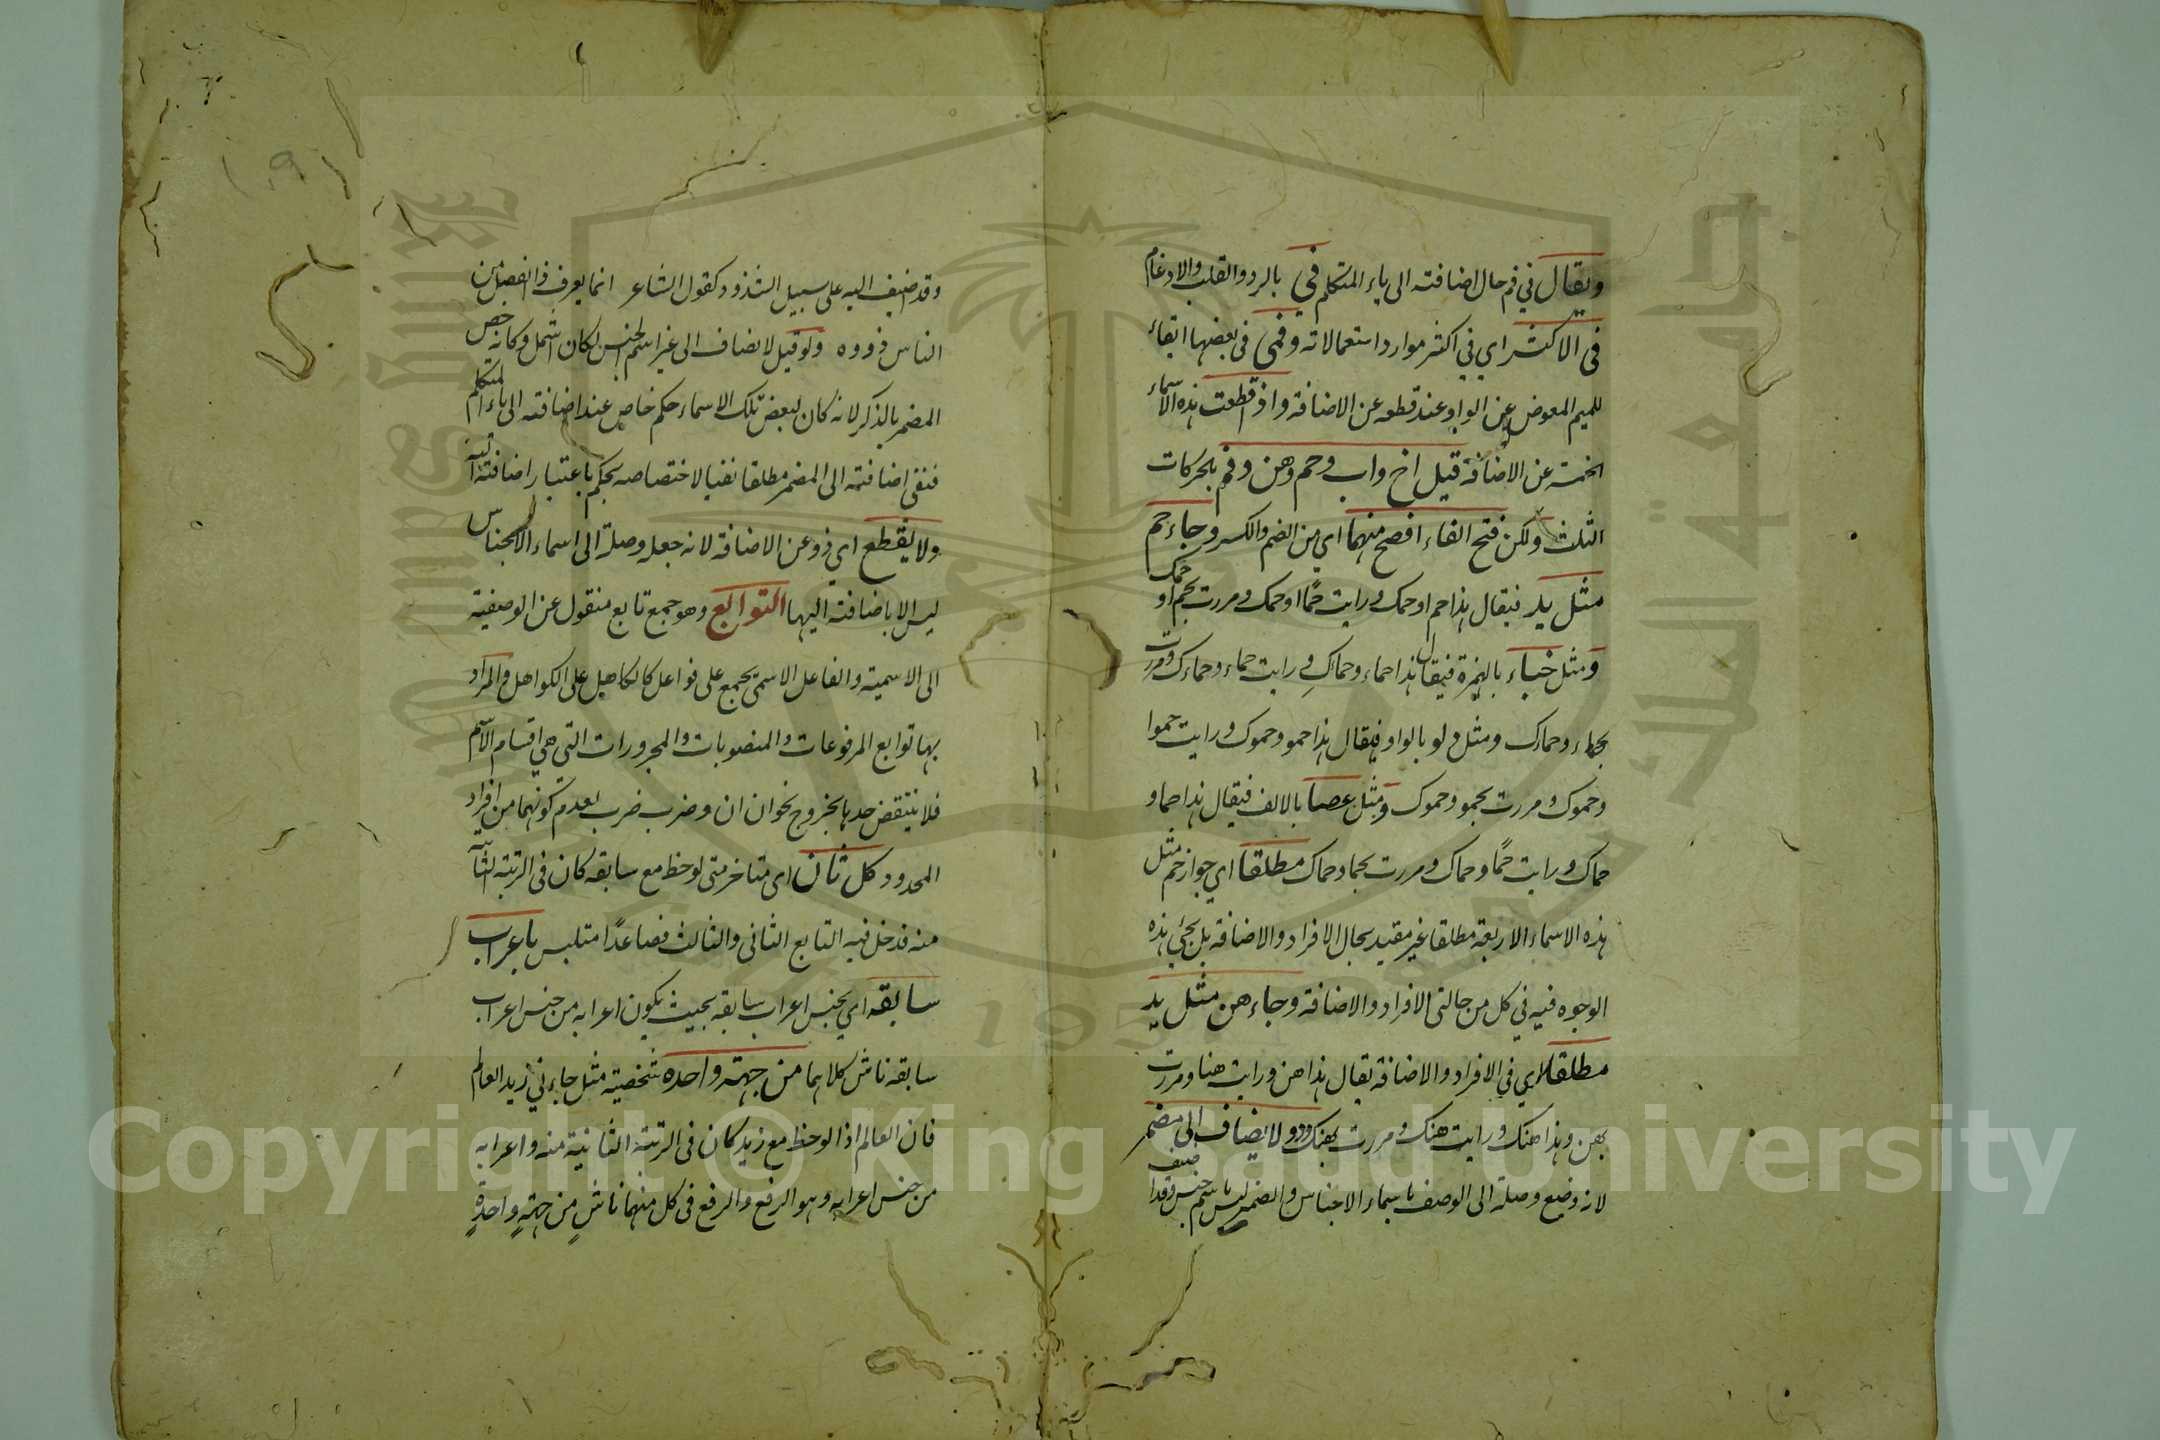 ويقال في فم حال اضافته الى ياء المتكلم في بالرد والقلب والادغام
في الاكثر اي في اكثر موارد استعمالاته وفمي في بعضها ابقاء
للميم المعوض عن الواو عند قطعه عن الاضافة واذ قطعت هذه الاسماء
الخمسة عن الاضافة قيل اخ واب وحم وهن وفم بالحركات
الثلث ولكن فتح الفاء افصح منهما اي من الضم والكسر وجاء حم
مثل يد فيقال هذا حم او حمك ورايت حمًا او حمك ومررت بحم او حمك
ومثل خباء بالهمزة فيقال هذا حماء وحماءك ورايت حماء وحماءك ومررت
بحماء وحماءك ومثل دلو بالواو فيقال هذا حمو وحموك ورايت حموا
وحموك ومررت بحمو وحموك ومثل عصا بالالف فيقال هذا حما و
حماك ورايت حمًا وحماك ومررت بحما وحماك مطلقا اي جواز حم مثل
هذه الاسماء الاربعة مطلقا غير مقيد بحال الافراد والاضافة بل يجئ هذه
الوجوه فيه في كل من حالتي الافراد والاضافة وجاء هن مثل يد
مطلقا اي في الافراد والاضافة يقال هذا هن ورايت هنا ومررت
بهن وهذا هنك ورايت هنك ومررت بهنك وذو لا يضاف الى مضمر
لانه وضع وصلة الى الوصف باسماء الاجناس والضمير ليس باسم جنس وقد اضيف
وقد اضيف اليه على سبيل الشذوذ كقول الشاعر انما يعرف ذا الفضل من
الناس ذووه ولو قيل لا يضاف الى غير اسم الجنس لكان اشمل وكانه خص
المضمر بالذكر لانه كان لبعض تلك الاسماء حكم خاص عند اضافته الى ياء المتكلم
فنفى اضافته الى المضمر مطلقا نفيا لاختصاصه بحكم باعتبار اضافته اليه
ولا يقطع اي ذو عن الاضافة لانه جعل وصلة الى اسماء الاجناس
ليس الا باضافته اليها التوابع وهو جمع تابع منقول عن الوصفية
الى الاسمية والفاعل الاسمي يجمع على فواعل كالكاهل على الكواهل والمراد
بها توابع المرفوعات والمنصوبات والمجرورات التي هي اقسام الاسم
فلا ينتقض حدها بخروج نحو ان ان وضرب ضرب لعدم كونهما من افراد
المحدود كل ثان اى متاخر متى لوحظ مع سابقه كان في الرتبة الثانية
منه فدخل فيه التابع الثاني والثالث فصاعدًا متلبس باعراب
سابقه اي بجنس اعراب سابقه بحيث يكون اعرابه من جنس اعراب
سابقه ناش كلاهما من جهة واحدة شخصية مثل جاءني زيد العالم
فان العالم اذا لوحظ مع زيد كان في الرتبة الثانية منه واعرابه
من جنس اعرابه وهو الرفع والرفع في كل منهما ناشٍ من جهةٍ واحدةٍ
Copyright © King Saud University
1957